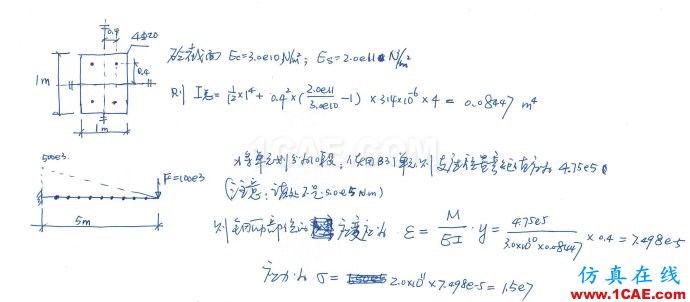 0.4
4Φ20
1m
0.4
1m
砼截面 Ec=3.0e10 N/m²; Es=2.0e11 N/m²
则 I总= 1/12×1⁴ + 0.4²×(2.0e11/3.0e10 -1) × 314×10⁻⁶ ×4 = 0.0847 m⁴
500e3.
F=100e3
5m
将单元划分为10段, 使用B31单元, 则支座位置弯矩值为 4.75e5
(注意: 该处不是5.0e5 Nm)
则钢筋部位的应变应为 ε = M/EI · y = 4.75e5/3.0×10¹⁰×0.0847 × 0.4 = 7.498e-5
应力为 σ = 2.0×10¹¹ × 7.498e-5 = 1.5e7
1CAE.COM
仿真在线
www.1CAE.com